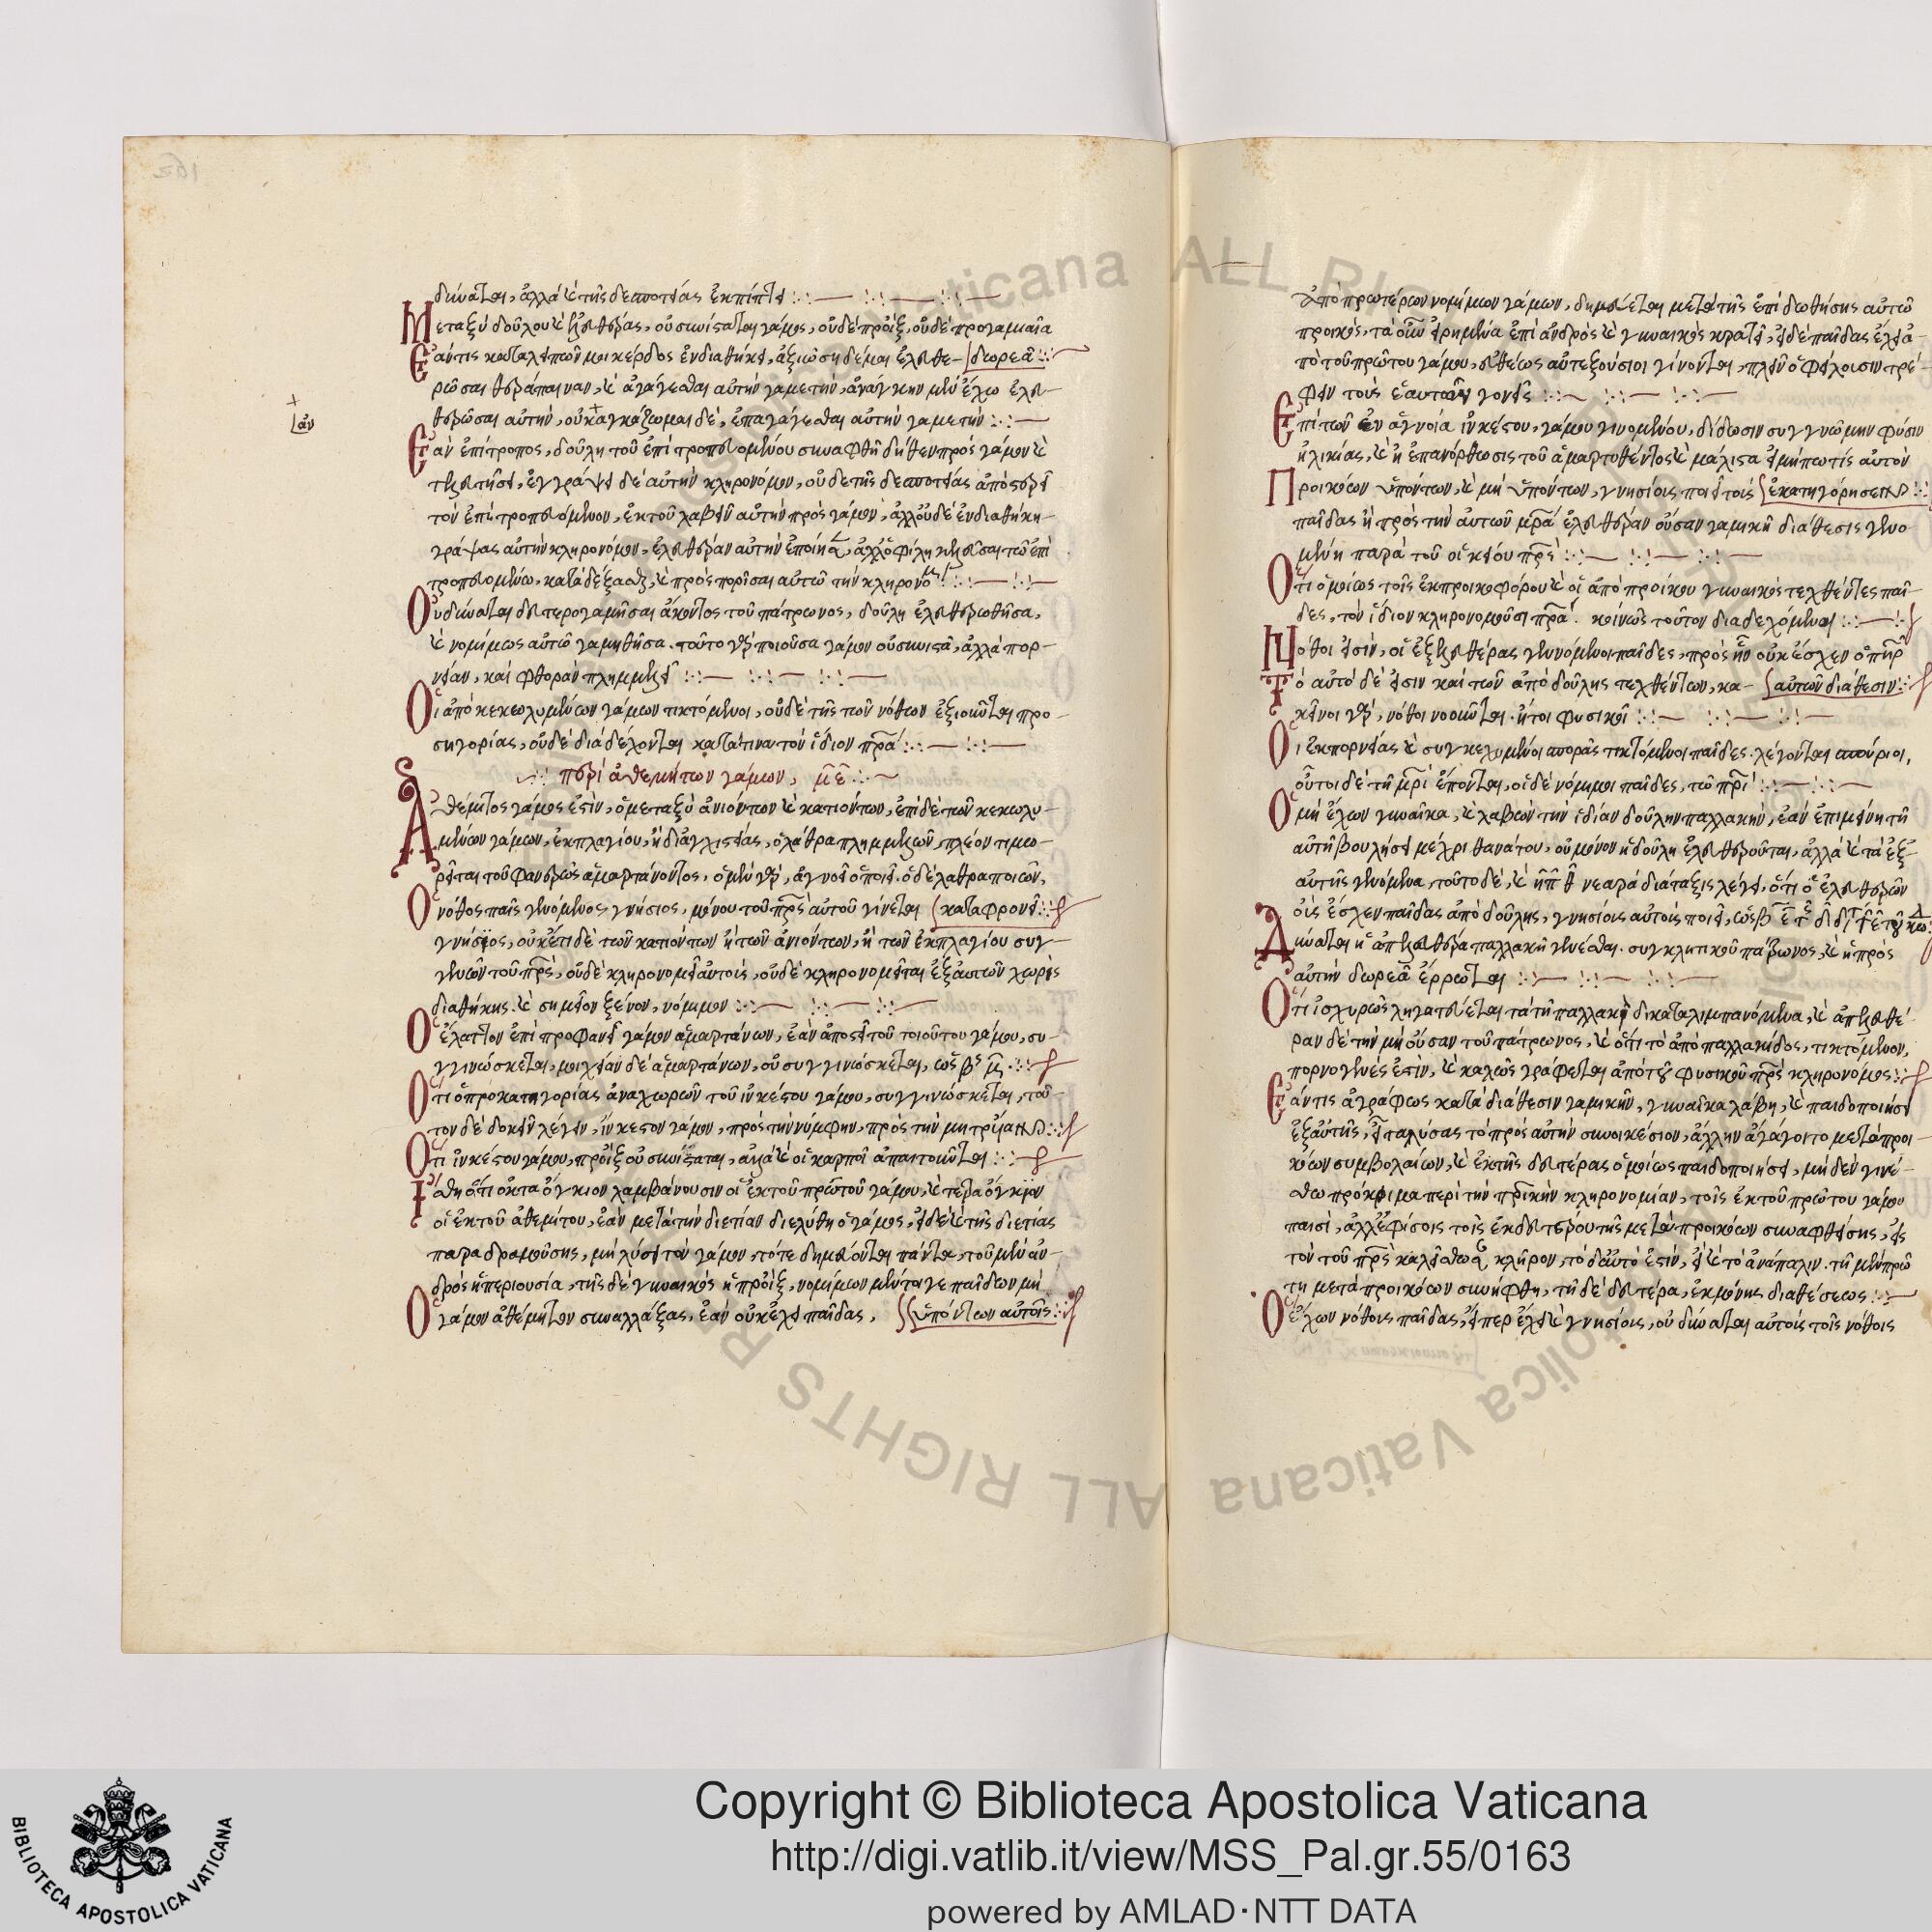 δύναται, ἀλλὰ καὶ τῆς δεσποτείας ἐκπίπτει
Μεταξὺ δούλου καὶ ἐλευθέρας, οὐ συνίσταται γάμος, οὐδὲ προὶξ, οὐδὲ προγαμιαῖα
δωρεά
Ἐάν τις καταλείπων μοι κέρδος ἐν διαθήκη, ἀξιώση δέ με ἐλευθε-
ρῶσαι θεράπαιναν, καὶ ἀγάγεσθαι αὐτὴν γαμετὴν, ἀνάγκην μὲν ἔχω ἐλευ-
θερῶσαι αὐτὴν, οὐκ ἀγκάζομαι δὲ, ἐπαγάγεσθαι αὐτὴν γαμετὴν
ἀν
Ἐὰν ἐπίτροπος, δούλη τοῦ ἐπιτροπευομένου συναφθῆ δῆθεν πρὸς γάμον καὶ
τελευτήσει, ἐγγράψει δὲ αὐτὴν κληρονόμον, οὐδὲ τῆς δεσποτείας ἀποστερεῖ
τὸν ἐπιτροπευόμενον, ἐκ τοῦ λαβεῖν αὐτὴν πρὸς γάμον, ἀλλ' οὐδὲ ἐν διαθήκη
γράψας αὐτὴν κληρονόμον, ἐλευθέραν αὐτὴν
τροπευομένω
Οὐ δύναται δευτερογαμῆσαι ἄκοντος τοῦ πάτρωνος, δούλη ἐλευθερωθῆσα,
καὶ νομίμως αὐτῶ γαμηθῆσα. τοῦτο γὰρ ποιοῦσα γάμον οὐ συνιστᾶ, ἀλλὰ πορ-
νείαν, καὶ φθορὰν πλημμελεῖ
Οἱ ἀπὸ κεκωλυμένων γάμων τικτόμενοι, οὐδὲ τῆς τῶν νόθων ἀξιοῦνται προ-
σηγορίας, οὐδὲ διαδέχονται κατά τινα τὸν ἴδιον πρα
περὶ ἀθεμίτων γάμων, με
Ἀθέμιτος γάμος ἐστὶν, ὁ μεταξὺ ἀνιόντων καὶ κατιόντων, ἐπὶ δὲ τῶν κεκωλυ-
μένων γάμων, ἐκ πλαγίου, ἢ δι' ἀγχιστείας, ὁ λάθρα πλημμελῶν, πλέον τιμω-
ρεῖται τοῦ φανερῶς ἁμαρτάνοντος, ὁ μὲν γὰρ, ἀγνοεῖ ὃ ποιεῖ. ὁ δὲ λάθρα ποιῶν,
καταφρονεῖ
Ὁ νόθος παῖς γενόμενος γνήσιος, μόνου τοῦ πρς αὐτοῦ γίνεται
γνήσιος, οὐκέτι δὲ τῶν κατιόντων ἢ τῶν ἀνιόντων, ἢ τῶν ἐκ πλαγίου συγ-
γενῶν τοῦ πρς, οὐδὲ κληρονομεῖ αὐτοῖς, οὐδὲ κληρονομεῖται ἐξ αὐτῶν χωρὶς
διαθήκης. καὶ σημεῖον ξένον, νόμιμον
Ὁ ἔλαττον ἐπὶ προφανεῖ γάμον ἁμαρτάνων, ἐὰν ἀποστῆ τοῦ τοιούτου γάμου, συ-
γγινώσκεται, μοιχείαν δὲ ἁμαρτάνων, οὐ συγγινώσκεται
Ὅτι ὁ πρὸ κατηγορίας ἀναχωρῶν τοῦ ἰνκέστου γάμου, συγγινώσκεται, τοῦ-
τον δὲ δοκεῖν λέγειν, ἴνκεστον γάμον, πρὸς τὴν νύμφην, πρὸς τὴν μητρυϊὰν
Ὅτι ἰνκέστου γάμου, προὶξ οὐ συνίσταται, ἀλλὰ καὶ οἱ καρποὶ ἀπαιτοῦνται
Ἴσθι ὅτι ὀκτὰ ὀγκίον λαμβάνουσιν οἱ ἐκ τοῦ πρώτου γάμου, καὶ τετρα ὀγκίον
οἱ ἐκ τοῦ ἀθεμίτου, ἐὰν μετὰ τὴν διετίαν διελύθη ὁ γάμος, εἰ δὲ καὶ τῆς διετίας
παραδραμούσης, μὴ λύσει τὸν γάμον, τότε δημεύονται πάντα, τοῦ μὲν ἀν-
δρὸς ἡ περιουσία, τῆς δὲ γυναικὸς ἡ προὶξ, νομίμων μέντοιγε παίδων μὴ
ὑπόντων αὐτοῖς
Ὁ γάμον ἀθέμητον συναλλάξας, ἐὰν οὐκ ἔχει παῖδας,
ἀπὸ προτέρων νομίμων γάμων, δημεύεται μετὰ τῆς ἐπιδωθήσης αὐτῶ
προικὸς, τὰ οὖν εἰρημένα ἐπὶ ἀνδρὸς καὶ γυναικὸς κρατεῖ, εἰ δὲ παῖδας ἔχει ἀ-
πὸ τοῦ πρώτου γάμου, εὐθέως αὐτεξούσιοι γίνονται, πλὴν ὀφείλουσιν τρέ-
φειν τοὺς ἑαυτῶν γονεῖς
Ἐπὶ τῶν ἐν ἀγνοία ἰνκέστου, γάμου γινομένου, δίδωσιν συγγνώμην φύσιν
ἡλικίας, καὶ ἡ ἐπανόρθωσις τοῦ ἁμαρτηθέντος καὶ μάλιστα εἰ μήπω τίς αὐτὸν
ἐκατηγόρησεν
Προικώων ὑπόντων, καὶ μὴ ὑπόντων, γνησίους ποιεῖ τοὺς
παῖδας ἡ πρὸς τὴν αὐτῶν μρα ἐλευθέραν οὖσαν γαμικὴ διάθεσις γενο-
μένη παρὰ τοῦ οἰκείου πρς
Ὅτι ὁμοίως τοῖς ἐκ προικοφόρου καὶ οἱ ἀπὸ προίκου γυναικὸς τεχθέντες παῖ-
δες, τὸν ἴδιον κληρονομοῦσι πρα. κοίνως τοῦτον διαδεχόμενοι
Νόθοι εἰσὶν, οἱ ἐξ ἐλευθέρας γενόμενοι παῖδες, πρὸς ἣν οὐκ ἔσχεν ὁ πηρ
αὐτῶν διάθεσιν
Τὸ αὐτὸ δέ εἰσιν καὶ τῶν ἀπὸ δούλης τεχθέντων, κα-
κεῖνοι γὰρ, νόθοι νοοῦνται. ἤτοι φυσικοὶ
Οἱ ἐκ πορνείας καὶ συγκεχυμένοι σπορᾶς τικτόμενοι παῖδες. λέγονται σπούριοι,
οὗτοι δὲ τῆ μρι ἕπονται, οἱ δὲ νόμιμοι παῖδες, τῶ πρι
Ὁ μὴ ἔχων γυναῖκα, καὶ λαβὼν τὴν ἰδίαν δούλην παλλακὴν, ἐὰν ἐπιμείνη τῆ
αὐτῆ βουλήσει μέχρι θανάτου, οὐ μόνον ἡ δούλη ἐλευθεροῦται, ἀλλὰ καὶ τὰ ἐξ
αὐτῆς γενόμενα, τοῦτο δὲ, καὶ ἡ πθ νεαρὰ διάταξις λέγει, ὅτι ὁ ἐλευθερῶν
οὓς ἔσχεν παῖδας ἀπὸ δούλης, γνησίους αὐτοὺς ποιεῖ
Δύναται ἡ ἀπελευθέρα παλλακὴ γενέσθαι. συγκλητικοῦ πάτρωνος, καὶ ἡ πρὸς
αὐτὴν δωρεὰ ἔρρωται
Ὅτι ἰσχυρῶς ληγατεύεται τὰ τῆ παλλακίδι καταλιμπανόμενα, καὶ ἀπελευθέ-
ραν δὲ τὴν μὴ οὖσαν τοῦ πάτρωνος, καὶ ὅτι τὸ ἀπὸ παλλακίδος, τικτόμενον,
πορνογενές ἐστὶν, καὶ καλῶς γράφεται ἀπὸ τοῦ φυσικοῦ πρς κληρονόμος
Ἐάν τις ἀγράφως κατὰ διάθεσιν γαμικὴν, γυναῖκα λάβη, καὶ παιδοποιήσει
ἐξ αὐτῆς, εἶτα λύσας τὸ πρὸς αὐτὴν συνοικέσιον, ἄλλην ἀγάγοιτο μετὰ προι-
κώων συμβολαίων, καὶ ἐκ τῆς δευτέρας ὁμοίως παιδοποιήσει, μηδὲν γινέ-
σθω πρόκριμα περὶ τὴν πρικὴν κληρονομίαν, τοῖς ἐκ τοῦ πρώτου γάμου
παισὶ, ἀλλ' ἐφίσοις τοῖς ἐκ δευτέρου τῆς μετὰ προικώων συναφθείσης, εἰς
τὸν τοῦ πρς καλείσθωσαν κλῆρον, τὸ δ' αὐτὸ ἐστὶν, εἰ καὶ τὸ ἀνάπαλιν. τῆ μὲν πρώ
τη μετὰ προικώων συνήφθη, τῆ δὲ δευτέρα, ἐκ μόνης διαθέσεως
Ὁ ἔχων νόθους παῖδας, εἴπερ ἔχει καὶ γνησίους, οὐ δύναται αὐτοὺς τοῖς νόθοις
Copyright © Biblioteca Apostolica Vaticana
http://digi.vatlib.it/view/MSS_Pal.gr.55/0163
powered by AMLAD·NTT DATA
BIBLIOTECA APOSTOLICA VATICANA